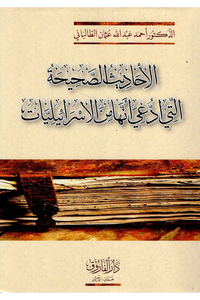 الدكتور أحمد عبد الله عثمان الطالباني
الأحاديث الصحيحة
التي ادعي أنها من الإسرائيليات
دار الفاروق
عمان - الأردن